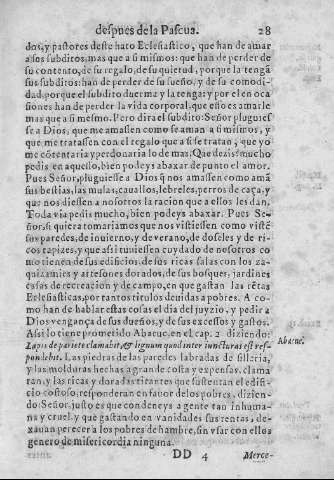 despues de la Pascua. 28
dos, y pastores deste hato Eclesiastico, que han de amar
a sos subditos, mas que a si mismos: que han de perder de
su contento, de su regalo, de su quietud, porque la tengã
sus subditos: han de perder de su sueño, y de su comodi-
dad, porque el subdito duerma y la tenga: y por el en oca
siones han de perder la vida corporal, que eño es amarle
mas que a si mesmo. Pero dira el subdito: Señor pluguies
se a Dios, que me amassen como se aman a si mismos, y
que me tratassen con el regalo que a si se tratan, que yo
me cõtentaria y perdonaria lo de mas. Que deais mucho
pedis en aquello, bien podeys abaxar de punto el amor.
Pues Señor, pluguiesse a Dios q̃ nos amassen como amã
sus bestias, las mulas, cauallos, lebreles, perros de caça, y
que nos diessen a nosotros la racion que a ellos les dan.
Toda via pedis mucho, bien podeys abaxar. Pues Se-
ñor, si quiera tomariamos que nos vistiessen como vistẽ
sus paredes, de inuierno, y de verano, de doseles y de ri-
cos tapizes, y que assi tuuiessen cuydado de nosotros co
mo tienen de sus edificios, de sus ricas salas con los za-
quizamies y artesones dorados, de sus bosques, jardines
casas de recreacion y de campo, en que gastan las rẽtas
Eclesiasticas, por tantos titulos deuidas a pobres. A co-
mo han de hablar estas cosas el dia del juyzio, y pedir a
Dios vengança de sus dueños, y de sus excessos y gastos.
Assi lo tiene prometido Abacuc, en el cap. 2 diziendo:
Abacuc.
Lapis de pariete clamabit, & lignum quod inter iuncturas est res-
pondebit. Las piedras de las paredes labradas de silleria,
y las molduras hechas a grande costa y expensas, clama
ran, y las ricas y doradas tirantes que sustentan el edifi-
cio costoso, responderan en fauor de los pobres, dizien-
do: Señor justo es que condeneys a gente tan inhuma-
na y cruel, y que gastando en vanidades sus rentas, de-
xauan perecer a los pobres de hambre, sin vsar con ellos
genero de misericordia ninguna.
DD 4 Merce-